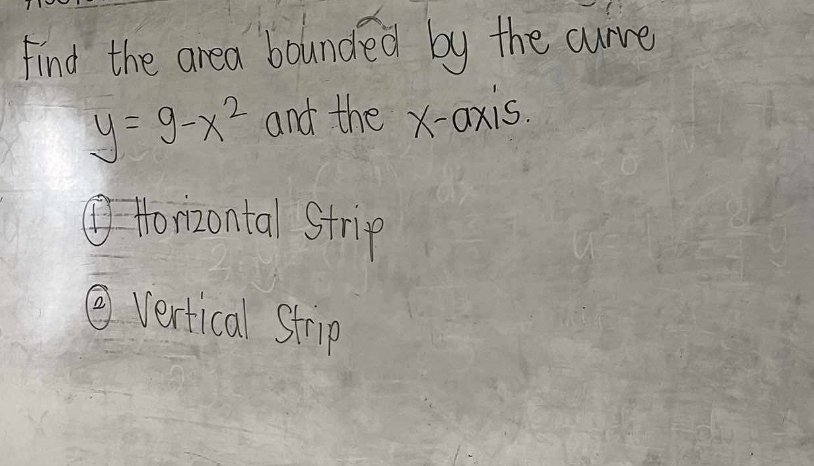 Find the area bounded by the curve
y = 9-x² and the x-axis.
① Horizontal Strip
② Vertical Strip